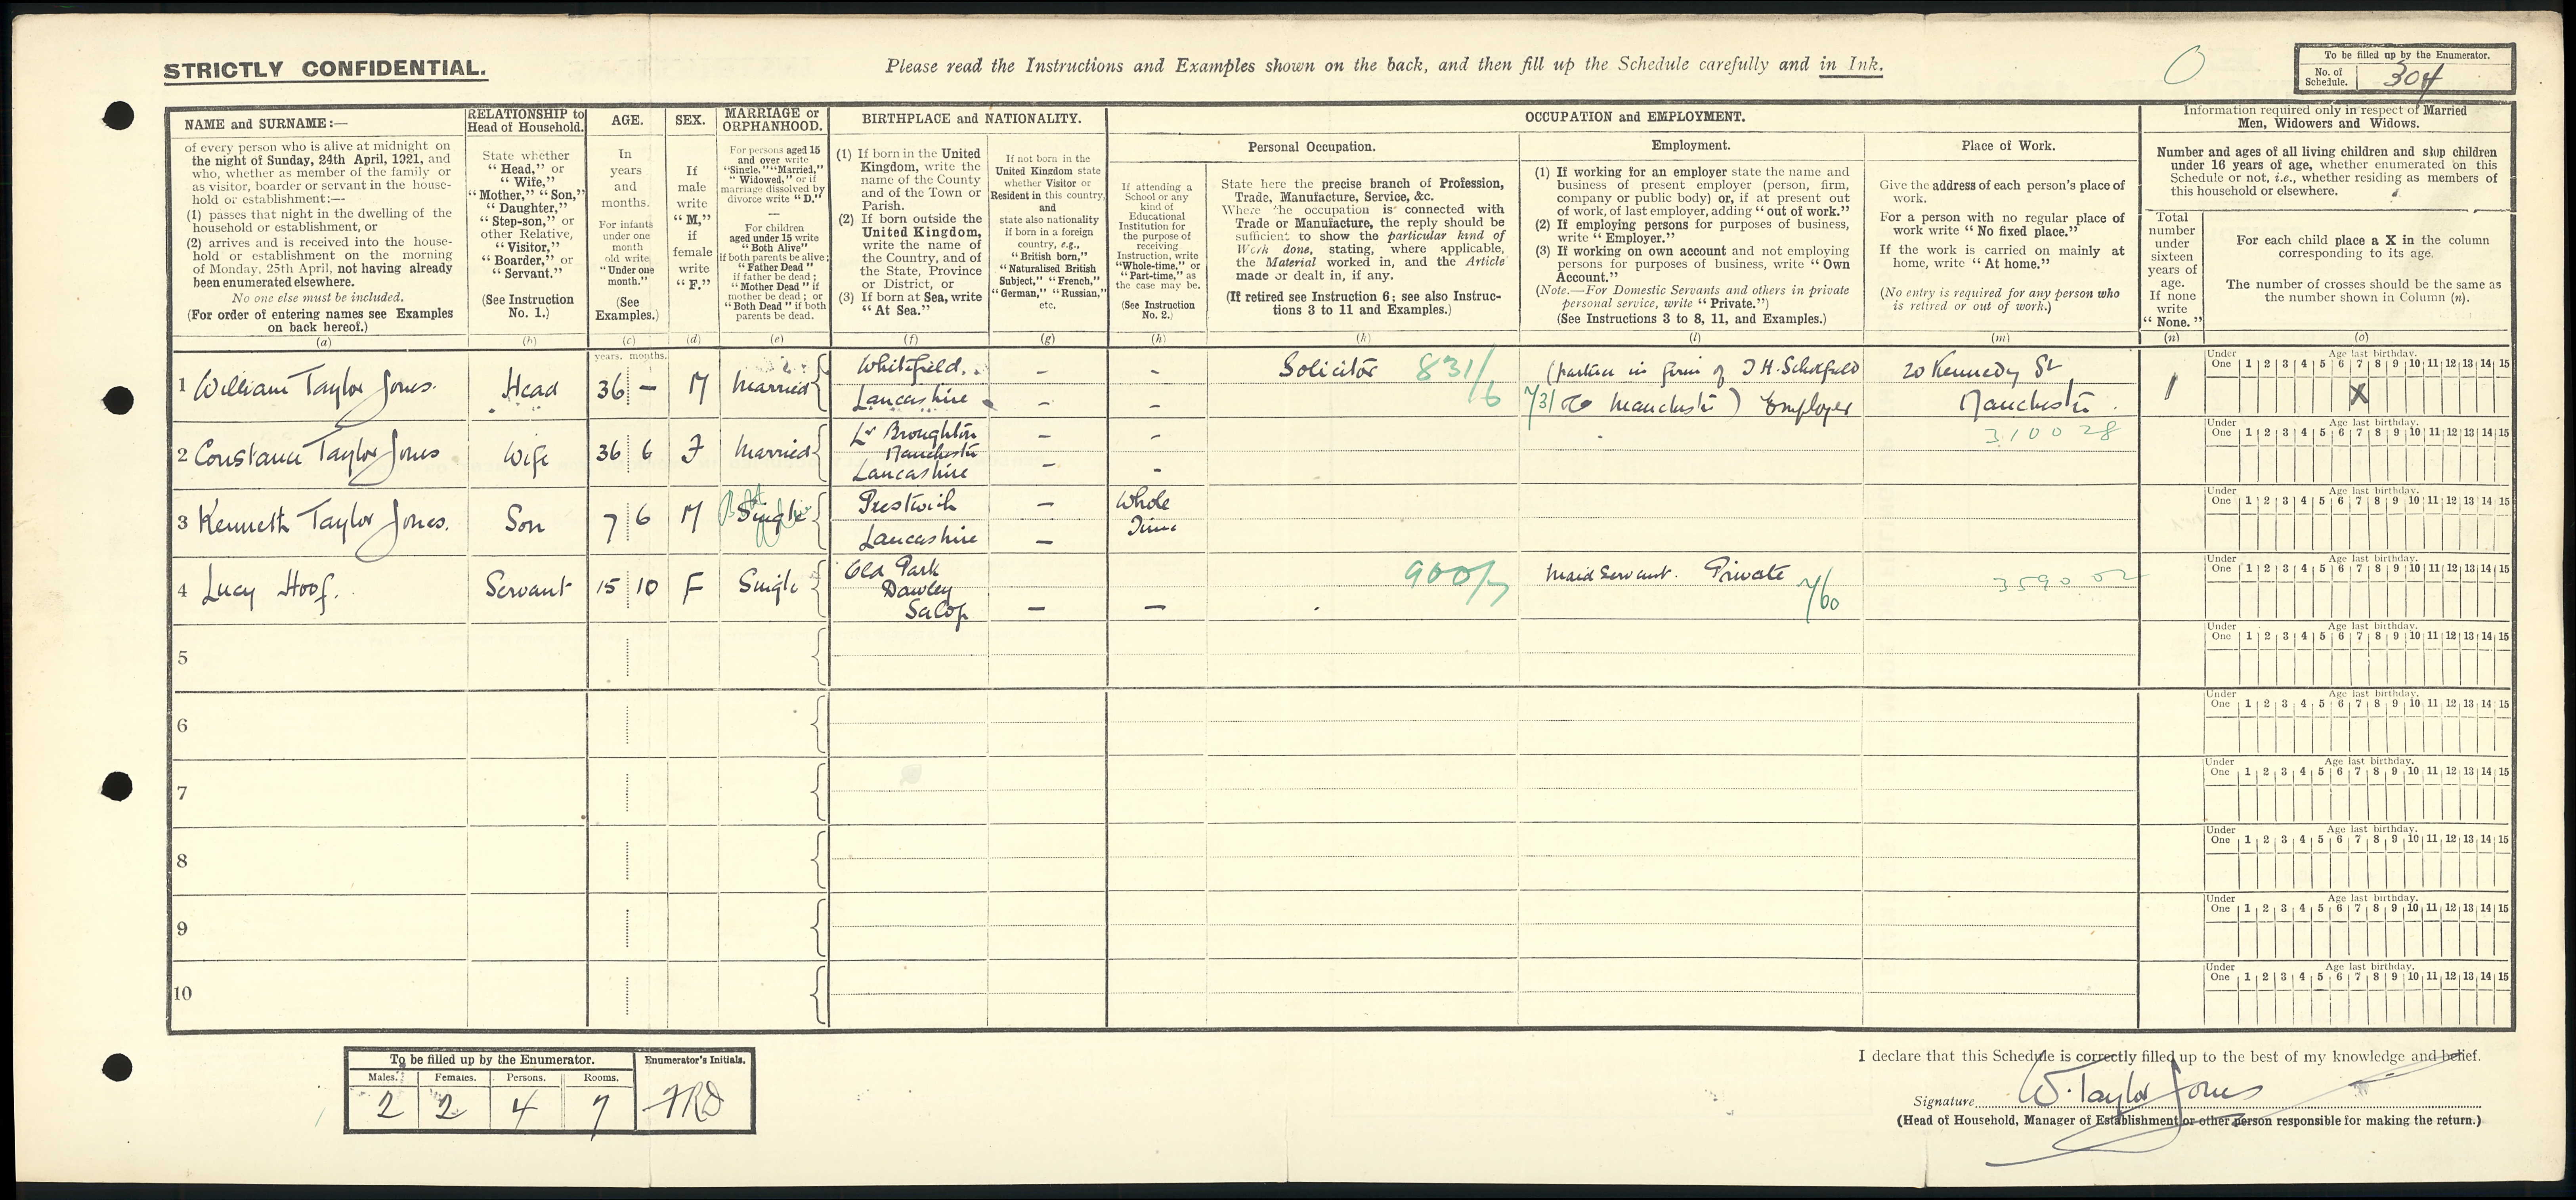 STRICTLY CONFIDENTIAL.
Please read the Instructions and Examples shown on the back, and then fill up the Schedule carefully and in Ink.
0
To be filled up by the Enumerator.
No. of Schedule. 304
NAME and SURNAME:—
of every person who is alive at midnight on
the night of Sunday, 24th April, 1921, and
who, whether as member of the family or
as visitor, boarder or servant in the house-
hold or establishment:—
(1) passes that night in the dwelling of the
household or establishment, or
(2) arrives and is received into the house-
hold or establishment on the morning
of Monday, 25th April, not having already
been enumerated elsewhere.
No one else must be included.
(For order of entering names see Examples
on back hereof.)
(a)
RELATIONSHIP to
Head of Household.
State whether
"Head," or
"Wife,"
"Mother," "Son,"
"Daughter,"
"Step-son," or
other Relative,
"Visitor,"
"Boarder," or
"Servant."
(See Instruction
No. 1.)
(b)
AGE.
In
years
and
months.
For infants
under one
month
old write
"Under one
month."
(See
Examples.)
(c)
SEX.
If
male
write
"M,"
if
female
write
"F."
(d)
MARRIAGE or
ORPHANHOOD.
For persons aged 15
and over write
"Single," "Married,"
"Widowed," or if
marriage dissolved by
divorce write "D."
For children
aged under 15 write
"Both Alive"
if both parents be alive;
"Father Dead"
if father be dead;
"Mother Dead" if
mother be dead; or
"Both Dead" if both
parents be dead.
(e)
BIRTHPLACE and NATIONALITY.
(1) If born in the United
Kingdom, write the
name of the County
and of the Town or
Parish.
(2) If born outside the
United Kingdom,
write the name of
the Country, and of
the State, Province
or District, or
(3) If born at Sea, write
"At Sea."
(f)
If not born in the
United Kingdom state
whether Visitor or
Resident in this country,
and
state also nationality
if born in a foreign
country, e.g.,
"British born,"
"Naturalised British
Subject," "French,"
"German," "Russian,"
etc.
(g)
OCCUPATION and EMPLOYMENT.
If attending a
School or any
kind of
Educational
Institution for
the purpose of
receiving
Instruction, write
"Whole-time," or
"Part-time," as
the case may be.
(See Instruction
No. 2.)
(h)
Personal Occupation.
State here the precise branch of Profession,
Trade, Manufacture, Service, &c.
Where the occupation is connected with
Trade or Manufacture, the reply should be
sufficient to show the particular kind of
Work done, stating, where applicable,
the Material worked in, and the Article
made or dealt in, if any.
(If retired see Instruction 6; see also Instruc-
tions 3 to 11 and Examples.)
(k)
Employment.
(1) If working for an employer state the name and
business of present employer (person, firm,
company or public body) or, if at present out
of work, of last employer, adding "out of work."
(2) If employing persons for purposes of business,
write "Employer."
(3) If working on own account and not employing
persons for purposes of business, write "Own
Account."
(Note.—For Domestic Servants and others in private
personal service, write "Private.")
(See Instructions 3 to 8, 11, and Examples.)
(l)
Place of Work.
Give the address of each person's place of
work.
For a person with no regular place of
work write "No fixed place."
If the work is carried on mainly at
home, write "At home."
(No entry is required for any person who
is retired or out of work.)
(m)
Information required only in respect of Married
Men, Widowers and Widows.
Number and ages of all living children and step children
under 16 years of age, whether enumerated on this
Schedule or not, i.e., whether residing as members of
this household or elsewhere.
Total
number
under
sixteen
years of
age.
If none
write
"None."
(n)
For each child place a X in the column
corresponding to its age.
The number of crosses should be the same as
the number shown in Column (n).
(o)
years. months.
1 William Taylor Jones. Head 36 – M Married Whitefield. Lancashire – – – – Solicitor 831/6 (partner in firm of J H. Schofield 731 & Co Manchester) Employer 20 Kennedy St Manchester. 1 X
2 Constance Taylor Jones Wife 36 6 F Married Lr Broughton Manchester Lancashire – – – – 310028
3 Kenneth Taylor Jones. Son 7 6 M Single Prestwich Lancashire – – Whole Time
4 Lucy Hoof. Servant 15 10 F Single Old Park Dawley Salop – – 900/7 Maid Servant. Private 7/60 359002
5
6
7
8
9
10
Under One 1 2 3 4 5 6 7 8 9 10 11 12 13 14 15
Age last birthday.
To be filled up by the Enumerator.
Males. Females. Persons. Rooms.
2 2 4 7
Enumerator's Initials.
FRD
I declare that this Schedule is correctly filled up to the best of my knowledge and belief.
Signature W. Taylor Jones
(Head of Household, Manager of Establishment or other person responsible for making the return.)